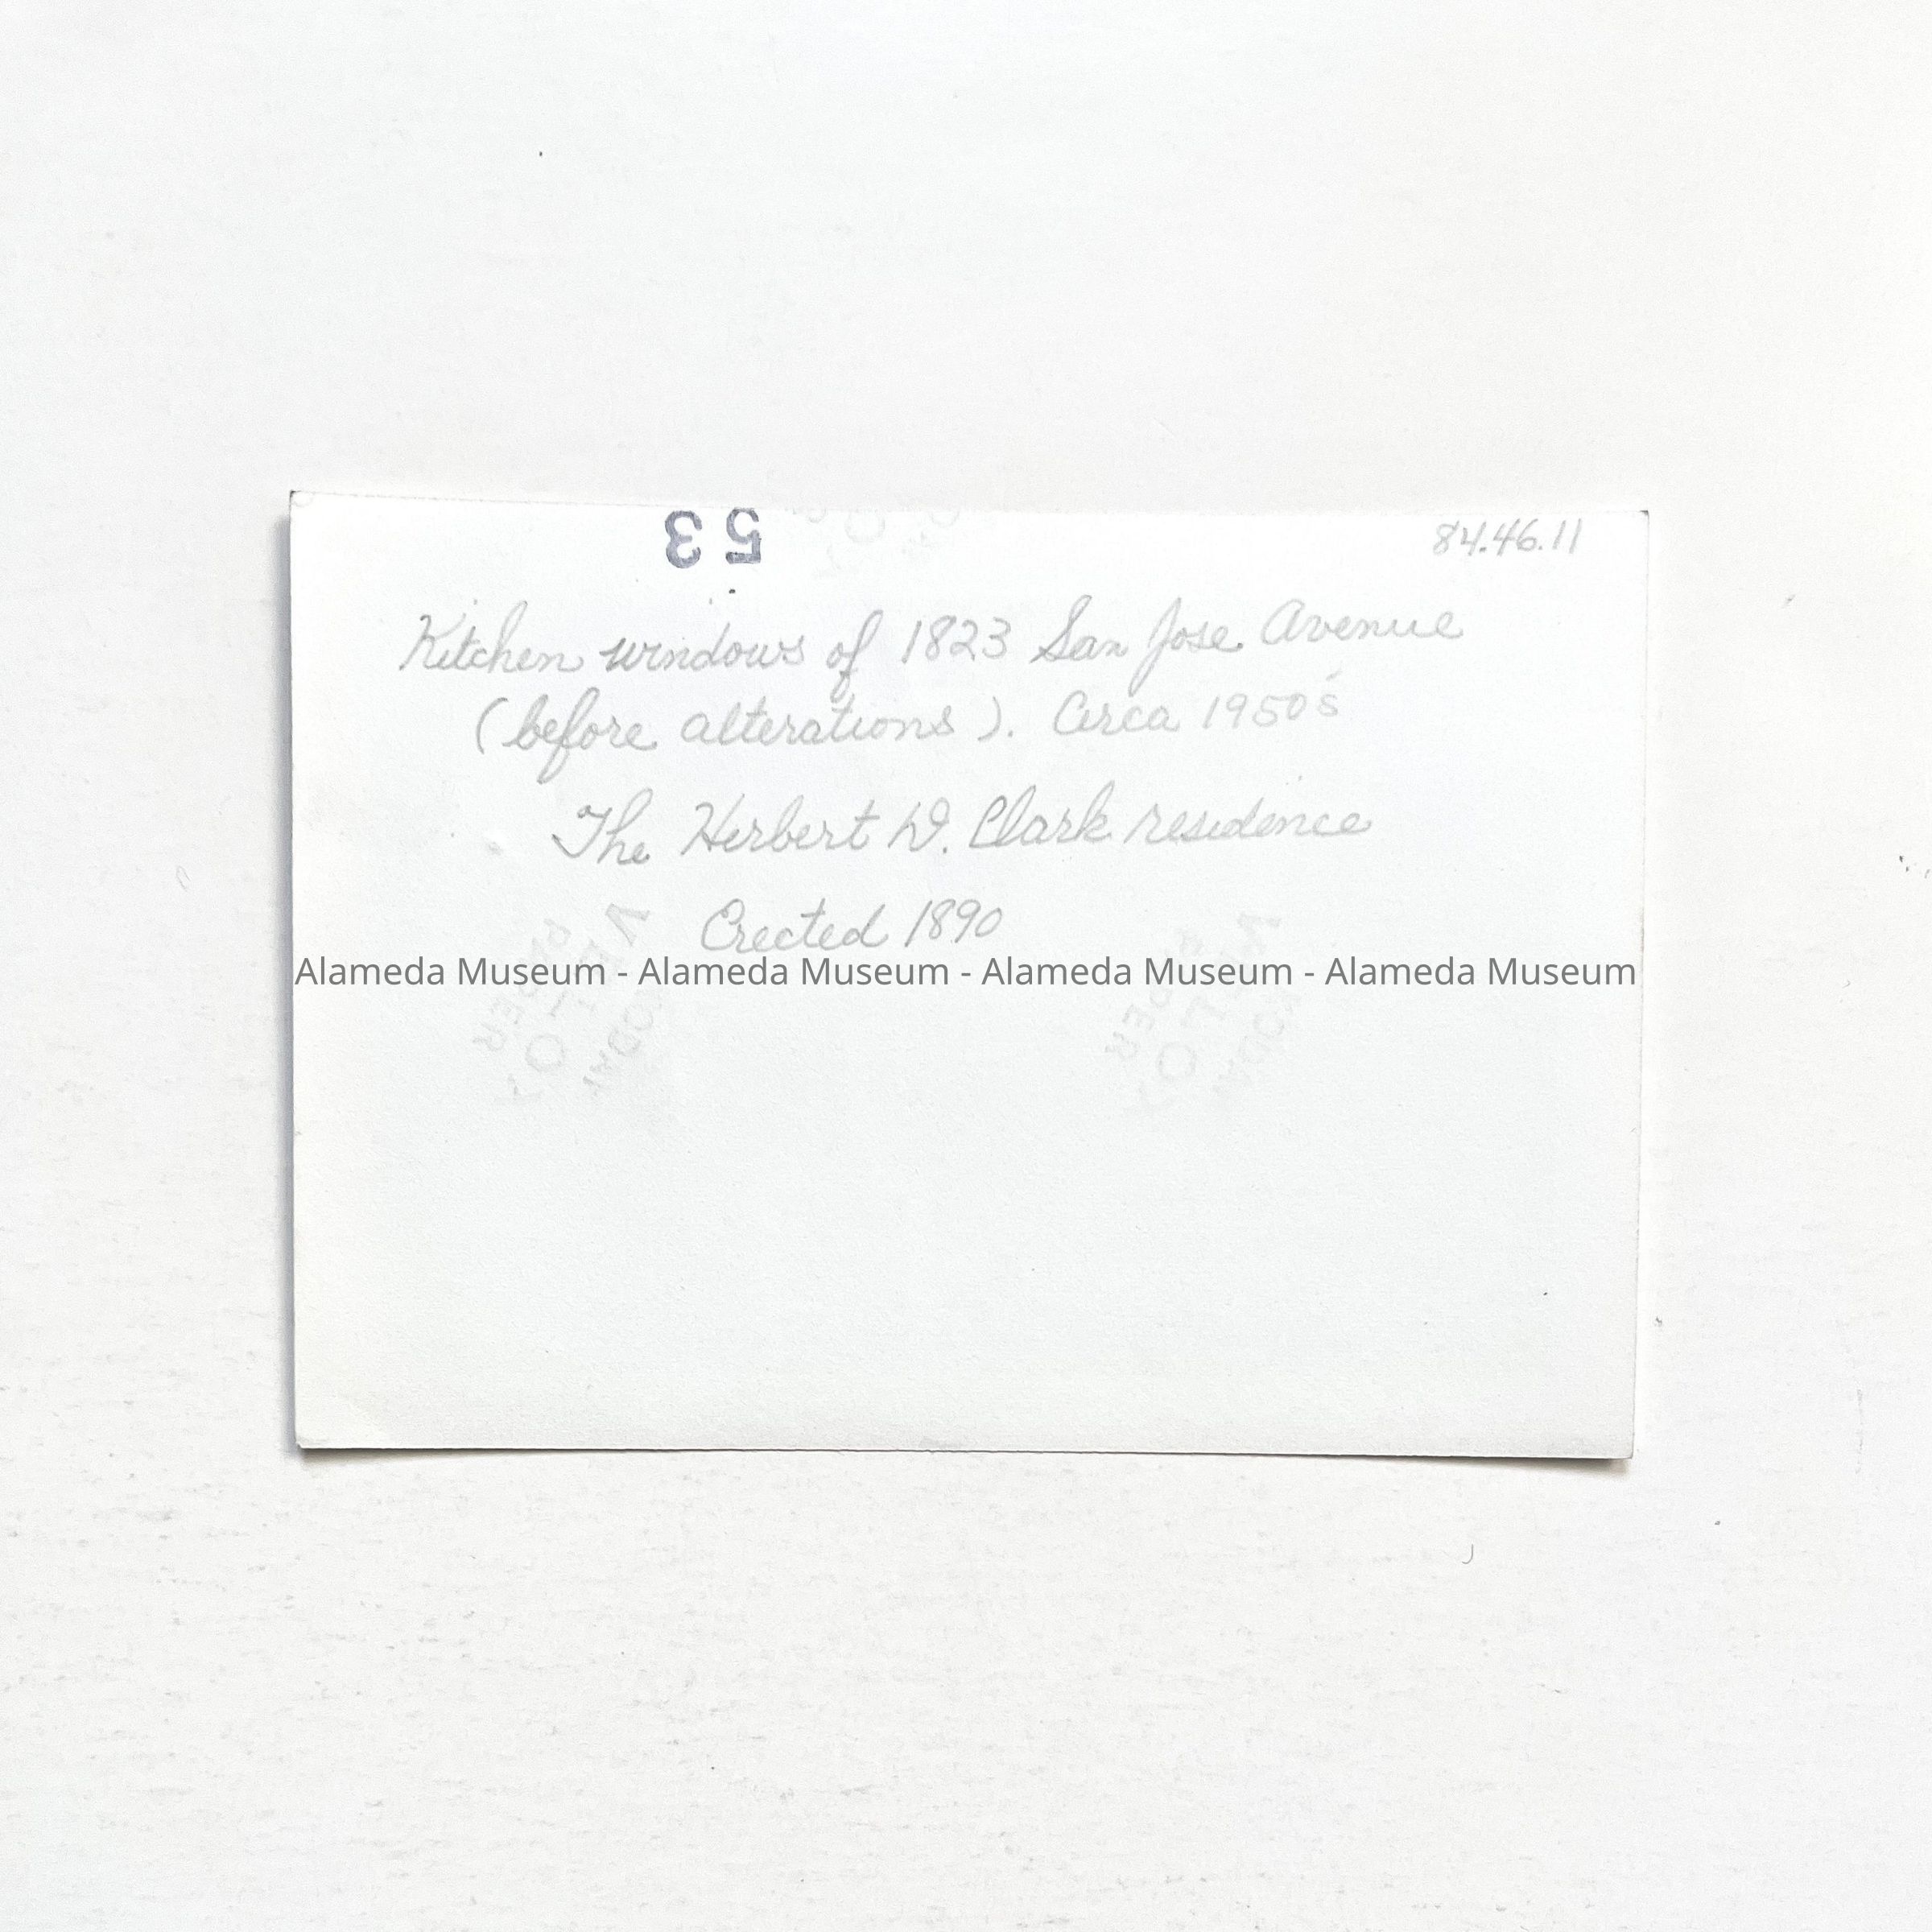 53
84.46.11
Kitchen windows of 1823 San Jose Avenue
(before alterations). Circa 1950's
The Herbert D. Clark residence
Erected 1890
Alameda Museum - Alameda Museum - Alameda Museum - Alameda Museum